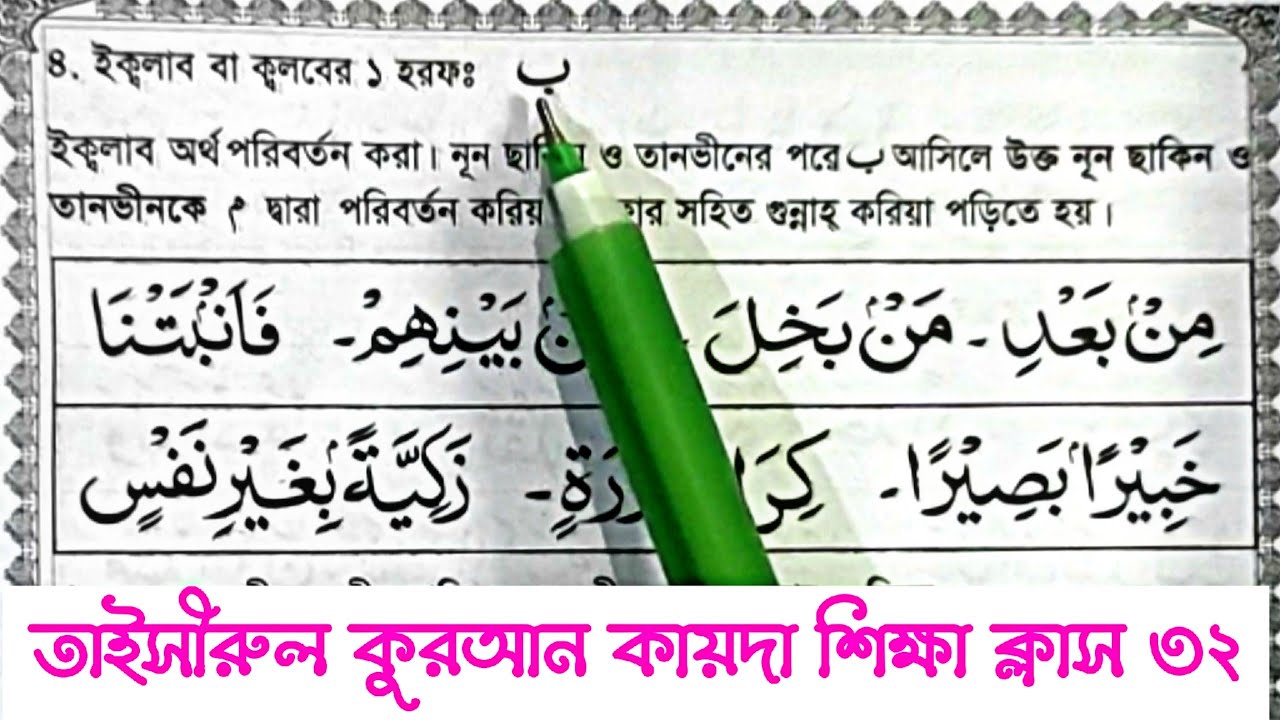 ৪. ইক্বলাব বা ক্বলবের ১ হরফঃ ب
ইক্বলাব অর্থ পরিবর্তন করা। নূন ও তানভীনের পরে ب আসিলে উক্ত নূন ছাকিন ও
তানভীনকে م দ্বারা পরিবর্তন সহিত গুন্নাহ্ করিয়া পড়িতে হয়।
مِنْۢ بَعْدِ ـ مَنْۢ بَخِلَ ـ بَيْنِهِمْ ـ فَاَنْۢبَتْنَا
خَبِيْرًاۢ بَصِيْرًا ـ زَكِيَّةًۢ بِغَيْرِ نَفْسٍ
তাইসীরুল কুরআন কায়দা শিক্ষা ক্লাস ৩২